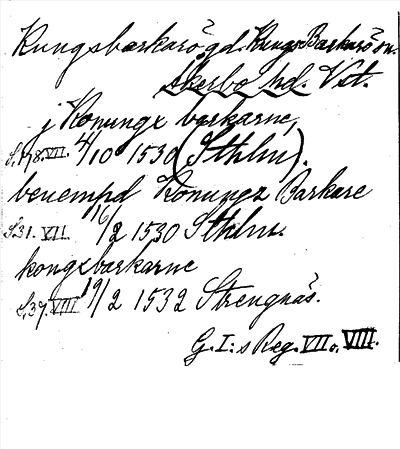 Kungsbarkarö, gd. Kungs Barkarö sn.
Åkerbo hd. Vst.
j Konungx barkarne,
S. 178. VII. 4/10 1530 (Sthlm).
benempd Konungz Barkare
S. 31. VII. 16/2 1530 Sthlm.
kongsbarkarne
S. 37. VIII 19/2 1532 Strengnäs.
G. I:s Reg. VII o. VIII.